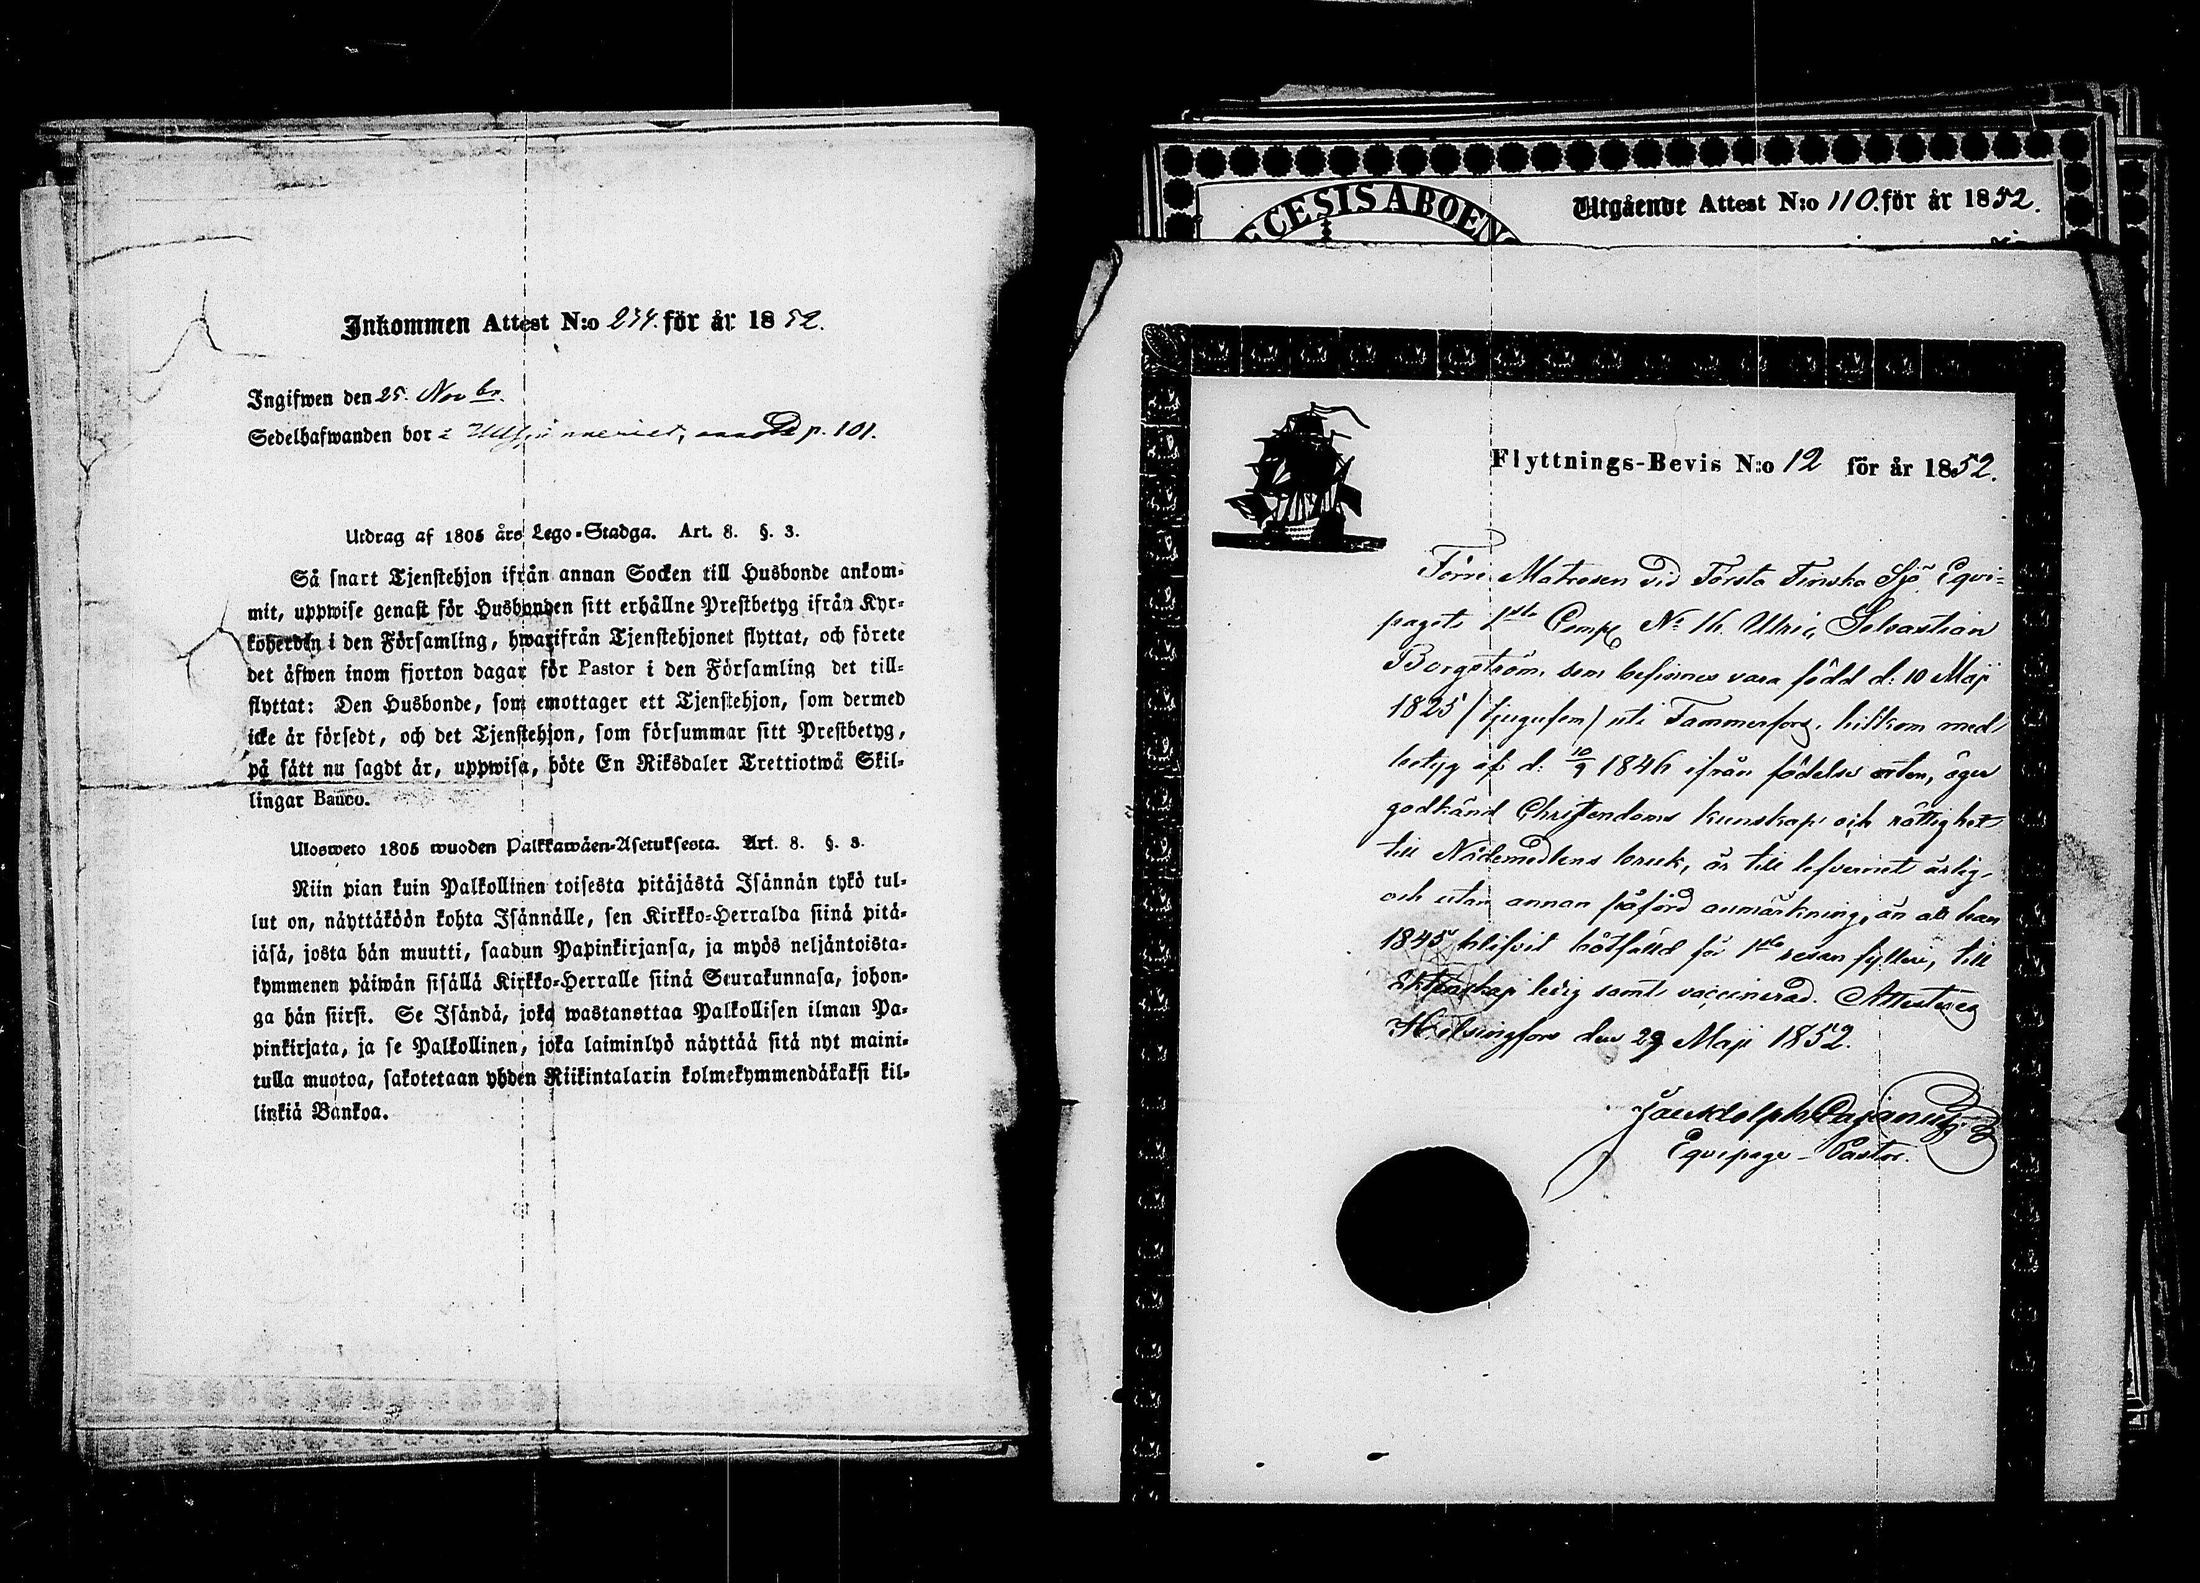 Inkommen Attest N:o 234. för år 1852.
Ingifwen den 25. Novbr.
Sedelhafwanden bor i Ullspinneriet, p. 101.
Utdrag af 1805 års Lego-Stadga. Art. 8. §. 3.
Så snart Tjenstehjon ifrån annan Socken till Husbonde ankom-
mit, uppwise genast för Husbonden sitt erhållne Prestbetyg ifrån Kyr-
koherden i den Församling, hwarifrån Tjenstehjonet flyttat, och förete
det äfwen inom fjorton dagar för Pastor i den Församling det till-
flyttat: Den Husbonde, som emottager ett Tjenstehjon, som dermed
icke är försedt, och det Tjenstehjon, som försummar sitt Prestbetyg,
på sätt nu sagdt är, uppwisa, böte En Riksdaler Trettiotwå Skil-
lingar Banco.
Ulosweto 1805 wuoden Palkkawäen-Asetuksesta. Art. 8. §. 3.
Niin pian kuin Palkollinen toisesta pitäjästä Isännän tykö tul-
lut on, näyttäköön kohta Isännälle, sen Kirkko-Herralda siinä pitä-
jäsä, josta hän muutti, saadun Papinkirjansa, ja myös neljäntoista-
kymmenen päiwän sisällä Kirkko-Herralle siinä Seurakunnasa, johon-
ga hän siirst. Se Isändä, joka wastanottaa Palkollisen ilman Pa-
pinkirjata, ja se Palkollinen, joka laiminlyö näyttää sitä nyt maini-
tulla muotoa, sakotetaan yhden Riikintalarin kolmekymmendäkaksi kil-
linkiä Bankoa.
CESIS ABOEN
Utgående Attest N:o 110. för år 1852.
Flyttnings-Bevis N:o 12 för år 1852.
Förre Matrosen vid Första Finska Sjö Equi-
pagets 1sta Comp. No 16. Ulric Sebastian
Borgström, som befinnes vara född d: 10 Maji
1825 (tjugufem) uti Tammerfors, hitkom med
betyg af d: 10/9 1846 ifrån födelse orten, äger
godkänd Christendoms kunskap och rättighet
till Nådemedlens bruk, är till lefvernet ärlig
och utan annan påförd anmärkning, än att han
1845 blifvit bötfälld för 1sta resan fylleri, till
Ektenskap ledig samt vaccinerad. Attesterar
Helsingfors den 29 Maji 1852.
Cajanus
Equipage-Pastor.